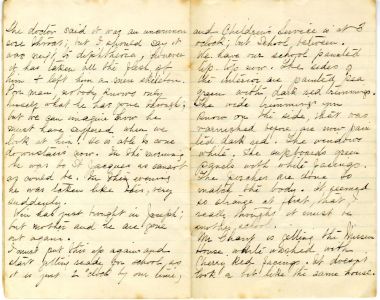 The doctor said it was an uncommon
sore throat; but I should say it
was next to diphtheria; however
it has taken all the flesh off
him & left him a mere skeleton.
Poor man, nobody knows only
himself what he has gone through;
but we can imagine how he
must have suffered when we
look at him. He is able to come
downstairs now. In the morning
he was to St Jacques as smart
as could be. In the evening
he was taken like this, very
suddenly.
has just brought in Joseph;
but mother and he are gone
out again.
I must put this up again and
start getting ready for school, as
it is just 2 o'clock by our time,
and Children's Service is at 3
o'clock; but School, between.
We have our school painted
up, now. The sides of
the interior are painted pea
green with dark red trimmings.
The wide trimmings you
know on the side, that was
varnished before, are now pain
ted dark red. The windows
white. The cupboards green
panels with white facings.
The porches are done to
match the body. It seemed
so strange at first, that I
really thought it must be
another school.
Mr Sharp is getting the Mission
house white washed with
Cherry Red facings. It doesn't
look a bit like the same house.